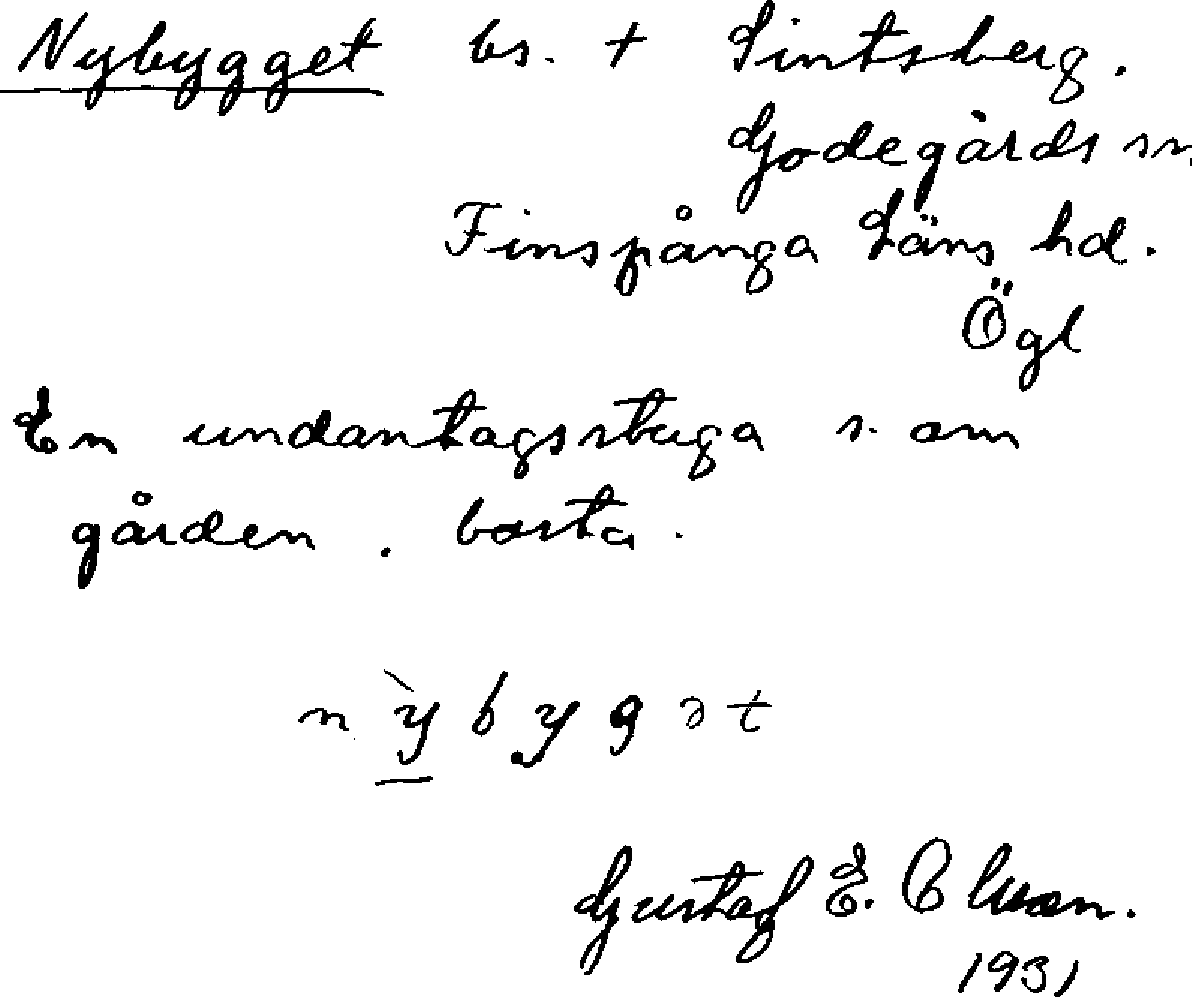 Nybygget bs. + Sintsberg.
Godegårds sn.
Finspånga Läns hd.
Ögl
En undantagsstuga s. om
gården. borta.
nỳbygət
Gustaf E. Olsson.
1931